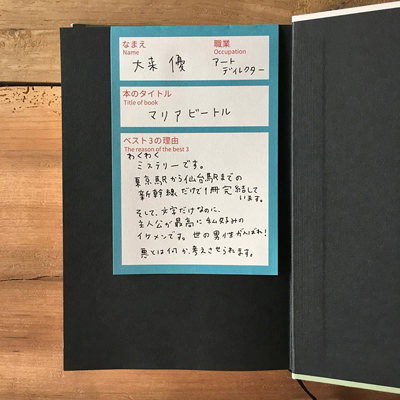 なまえ 職業
Name Occupation
大来 優 アート
ディレクター
本のタイトル
Title of book
マリアビートル
ベスト3の理由
The reason of the best 3
わくわく
ミステリーです。
東京駅から仙台駅までの
新幹線だけで1冊完結して
います。
そして、文字だけなのに、
主人公が最高に私好みの
イケメンです。世の男性がんばれ!
悪とは何か、考えさせられます。